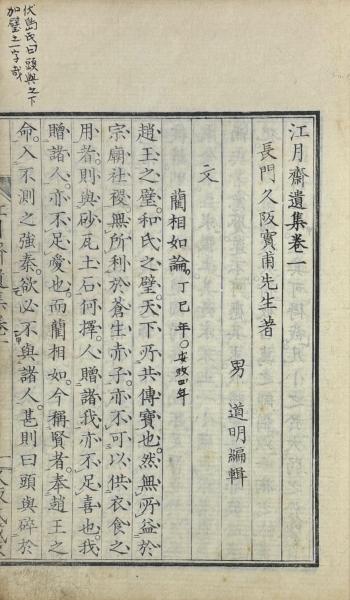 江月齋遺集卷一
長門久阪寶甫先生著
男 道明編輯
文
藺相如論。丁巳年。○安政四年
趙王之璧。和氏之璧。天下所共傳寶也。然無所益於
宗廟社稷。無所利於蒼生赤子。亦不可以供衣食之
用者。則與砂瓦土石何擇。人贈諸我亦不足喜也。我
贈諸人。亦不足愛也。而藺相如。今稱賢者。奉趙王之
命。入不測之強秦。欲必不與諸人。甚則曰頭與碎於
伏島氏曰頭與之下
加璧之二字哉